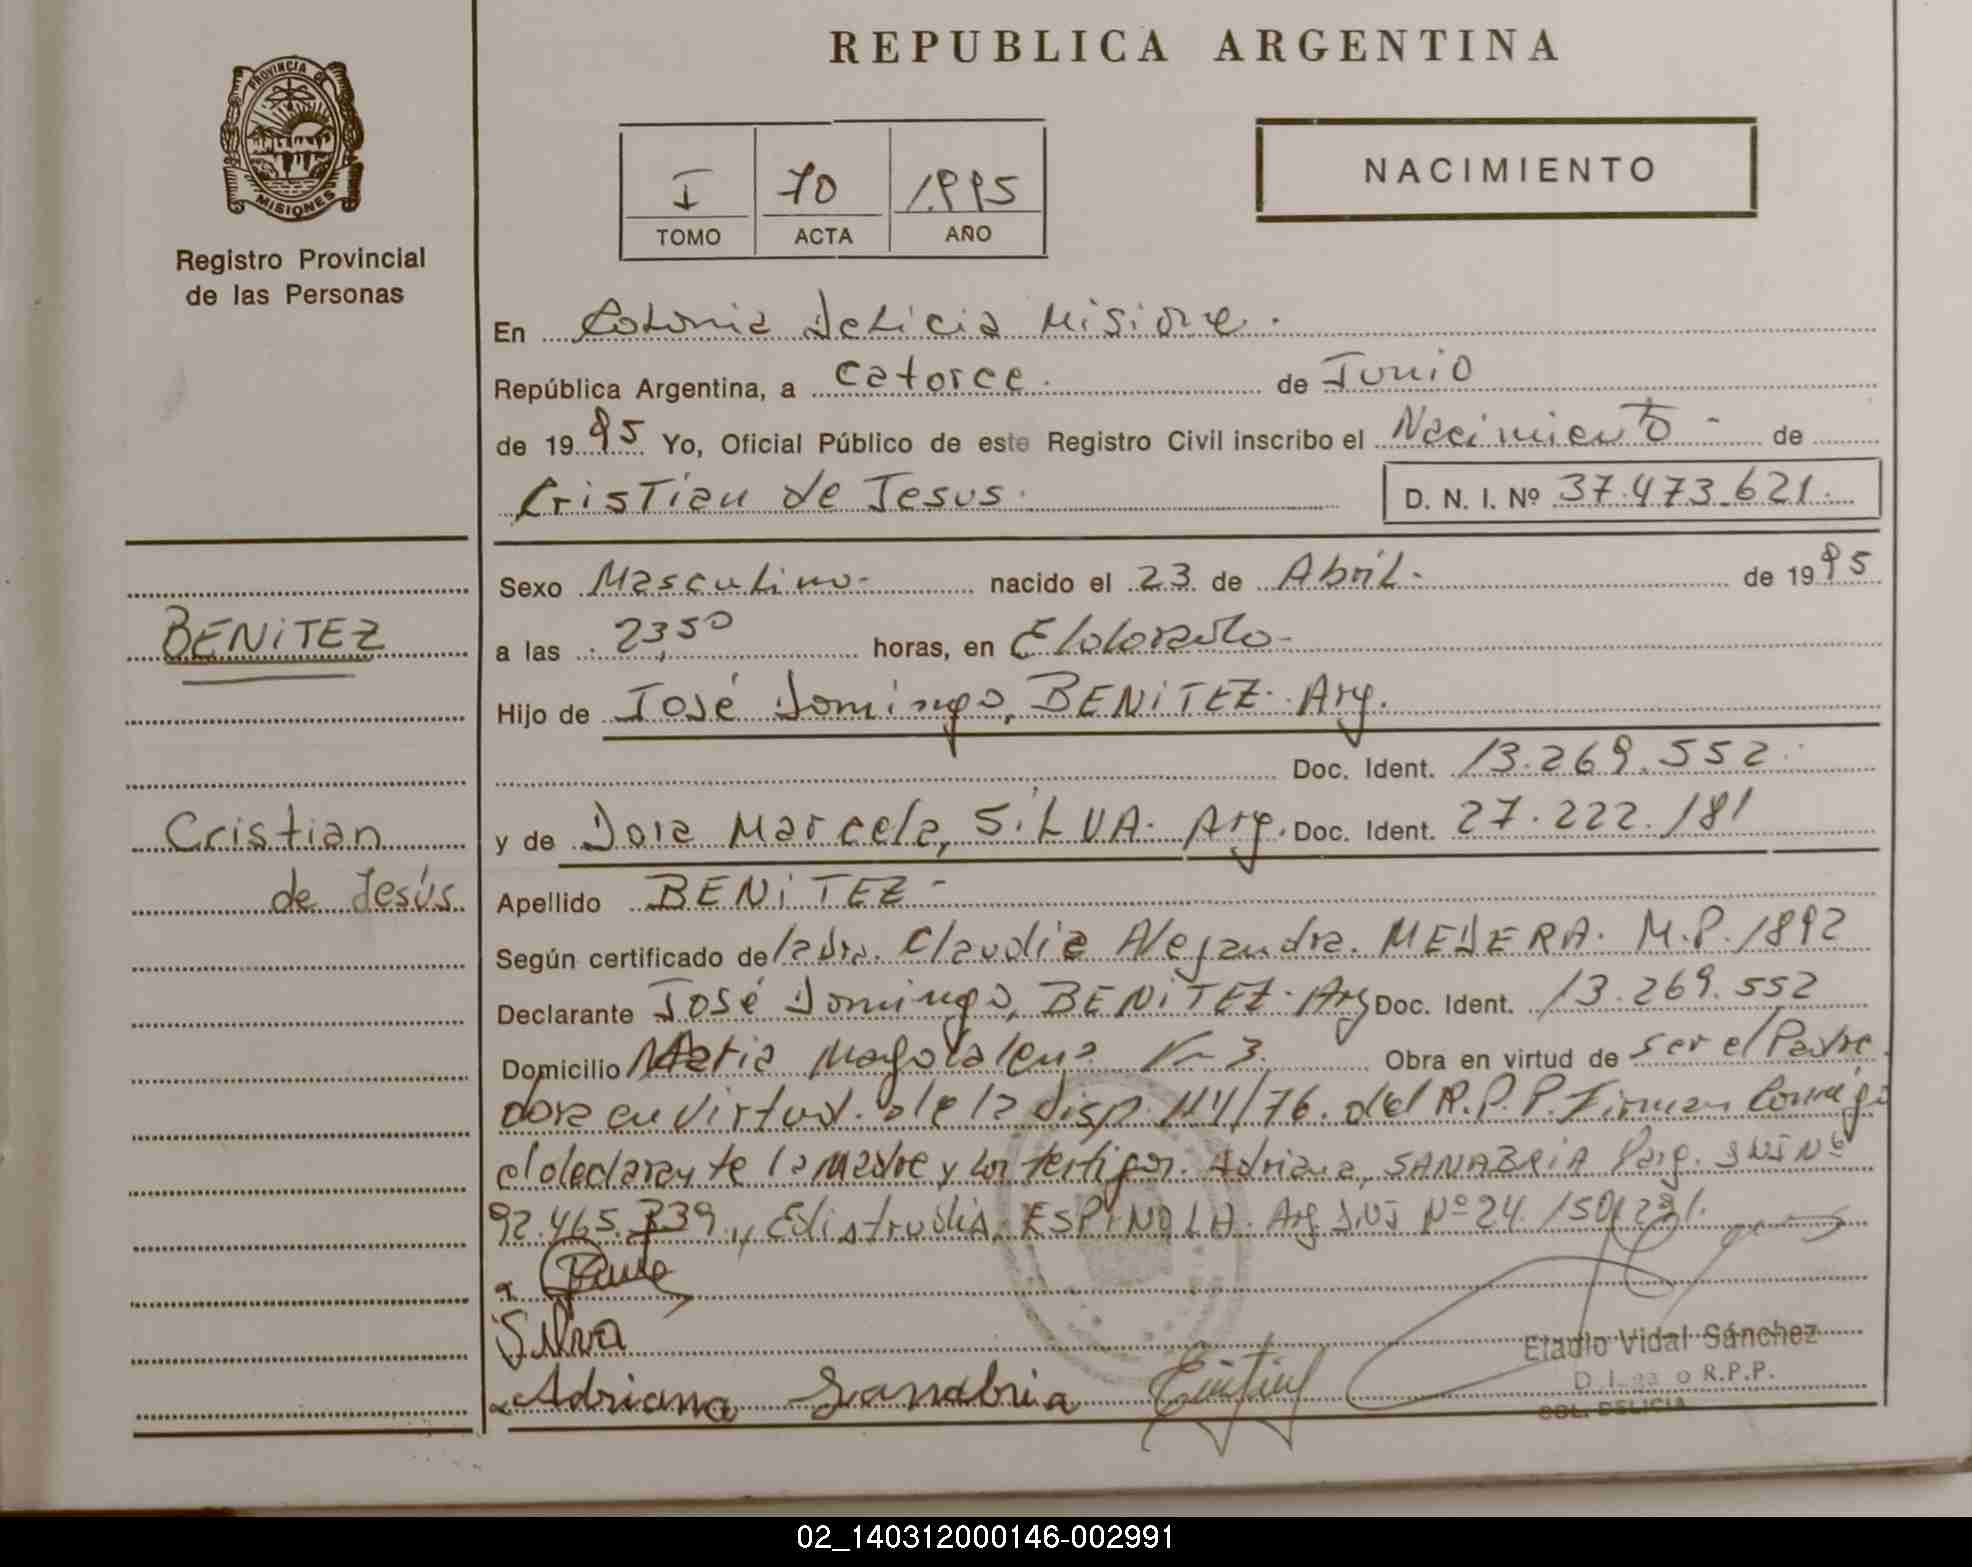 REPUBLICA ARGENTINA
PROVINCIA DE
MISIONES
Registro Provincial
de las Personas
I 70 1.995
TOMO ACTA AÑO
NACIMIENTO
En Colonia Delicia Misione.
República Argentina, a Catorce. de Junio
de 1995 Yo, Oficial Público de este Registro Civil inscribo el Nacimiento - de
Cristian de Jesus. D. N. I. Nº 37.473.621.
Sexo Masculino- nacido el 23 de Abril. de 1995
BENITEZ
a las 23,50 horas, en Eldorado-
Hijo de José Domingo, BENITEZ. Arg.
Doc. Ident. 13.269.552.
Cristian
de Jesús.
y de Dora Marcela, SILVA. Arg. Doc. Ident. 27.222.181
Apellido BENITEZ-
Según certificado de la dra. Claudia Alejandra. MEDERA. M.P. 1892
Declarante José Domingo, BENITEZ. Arg Doc. Ident. 13.269.552
Domicilio Maria Magdalena 3. Obra en virtud de ser el Padre.
en virtud. de la disp. 114/76. del R.P.P. Firman Conmigo
el declarante la Madre y los testigos. Adriana, SANABRIA Parg. DNI Nº
92.465.739., ESPINOLA. Arg DNI Nº 24.150.291.
Silva
Adriana Sanabria
Eladio Vidal Sánchez
R.P.P.
COL. DELICIA
02_140312000146-002991